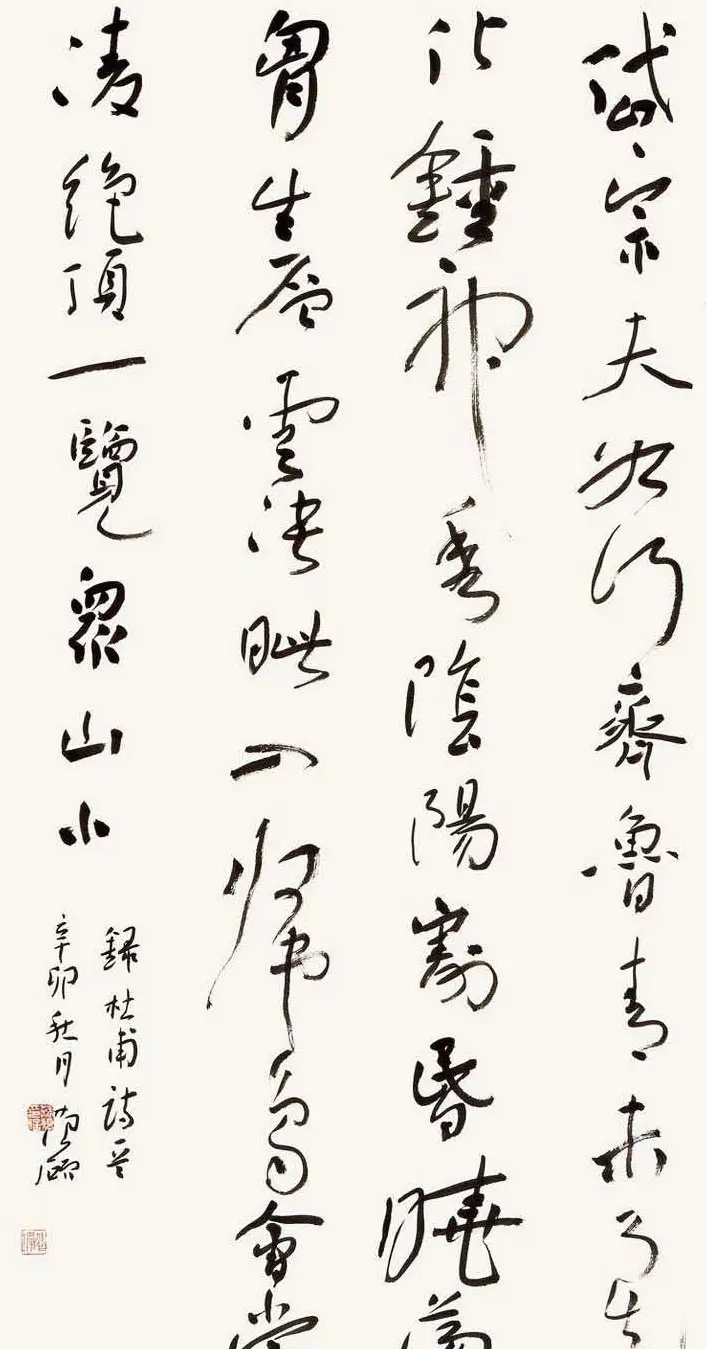 岱宗夫如何齊魯青未了造
化鍾神秀陰陽割昏曉蕩
胷生层雲決眦入歸鳥會當
凌絶頂一覽眾山小
録杜甫詩
辛卯秋月